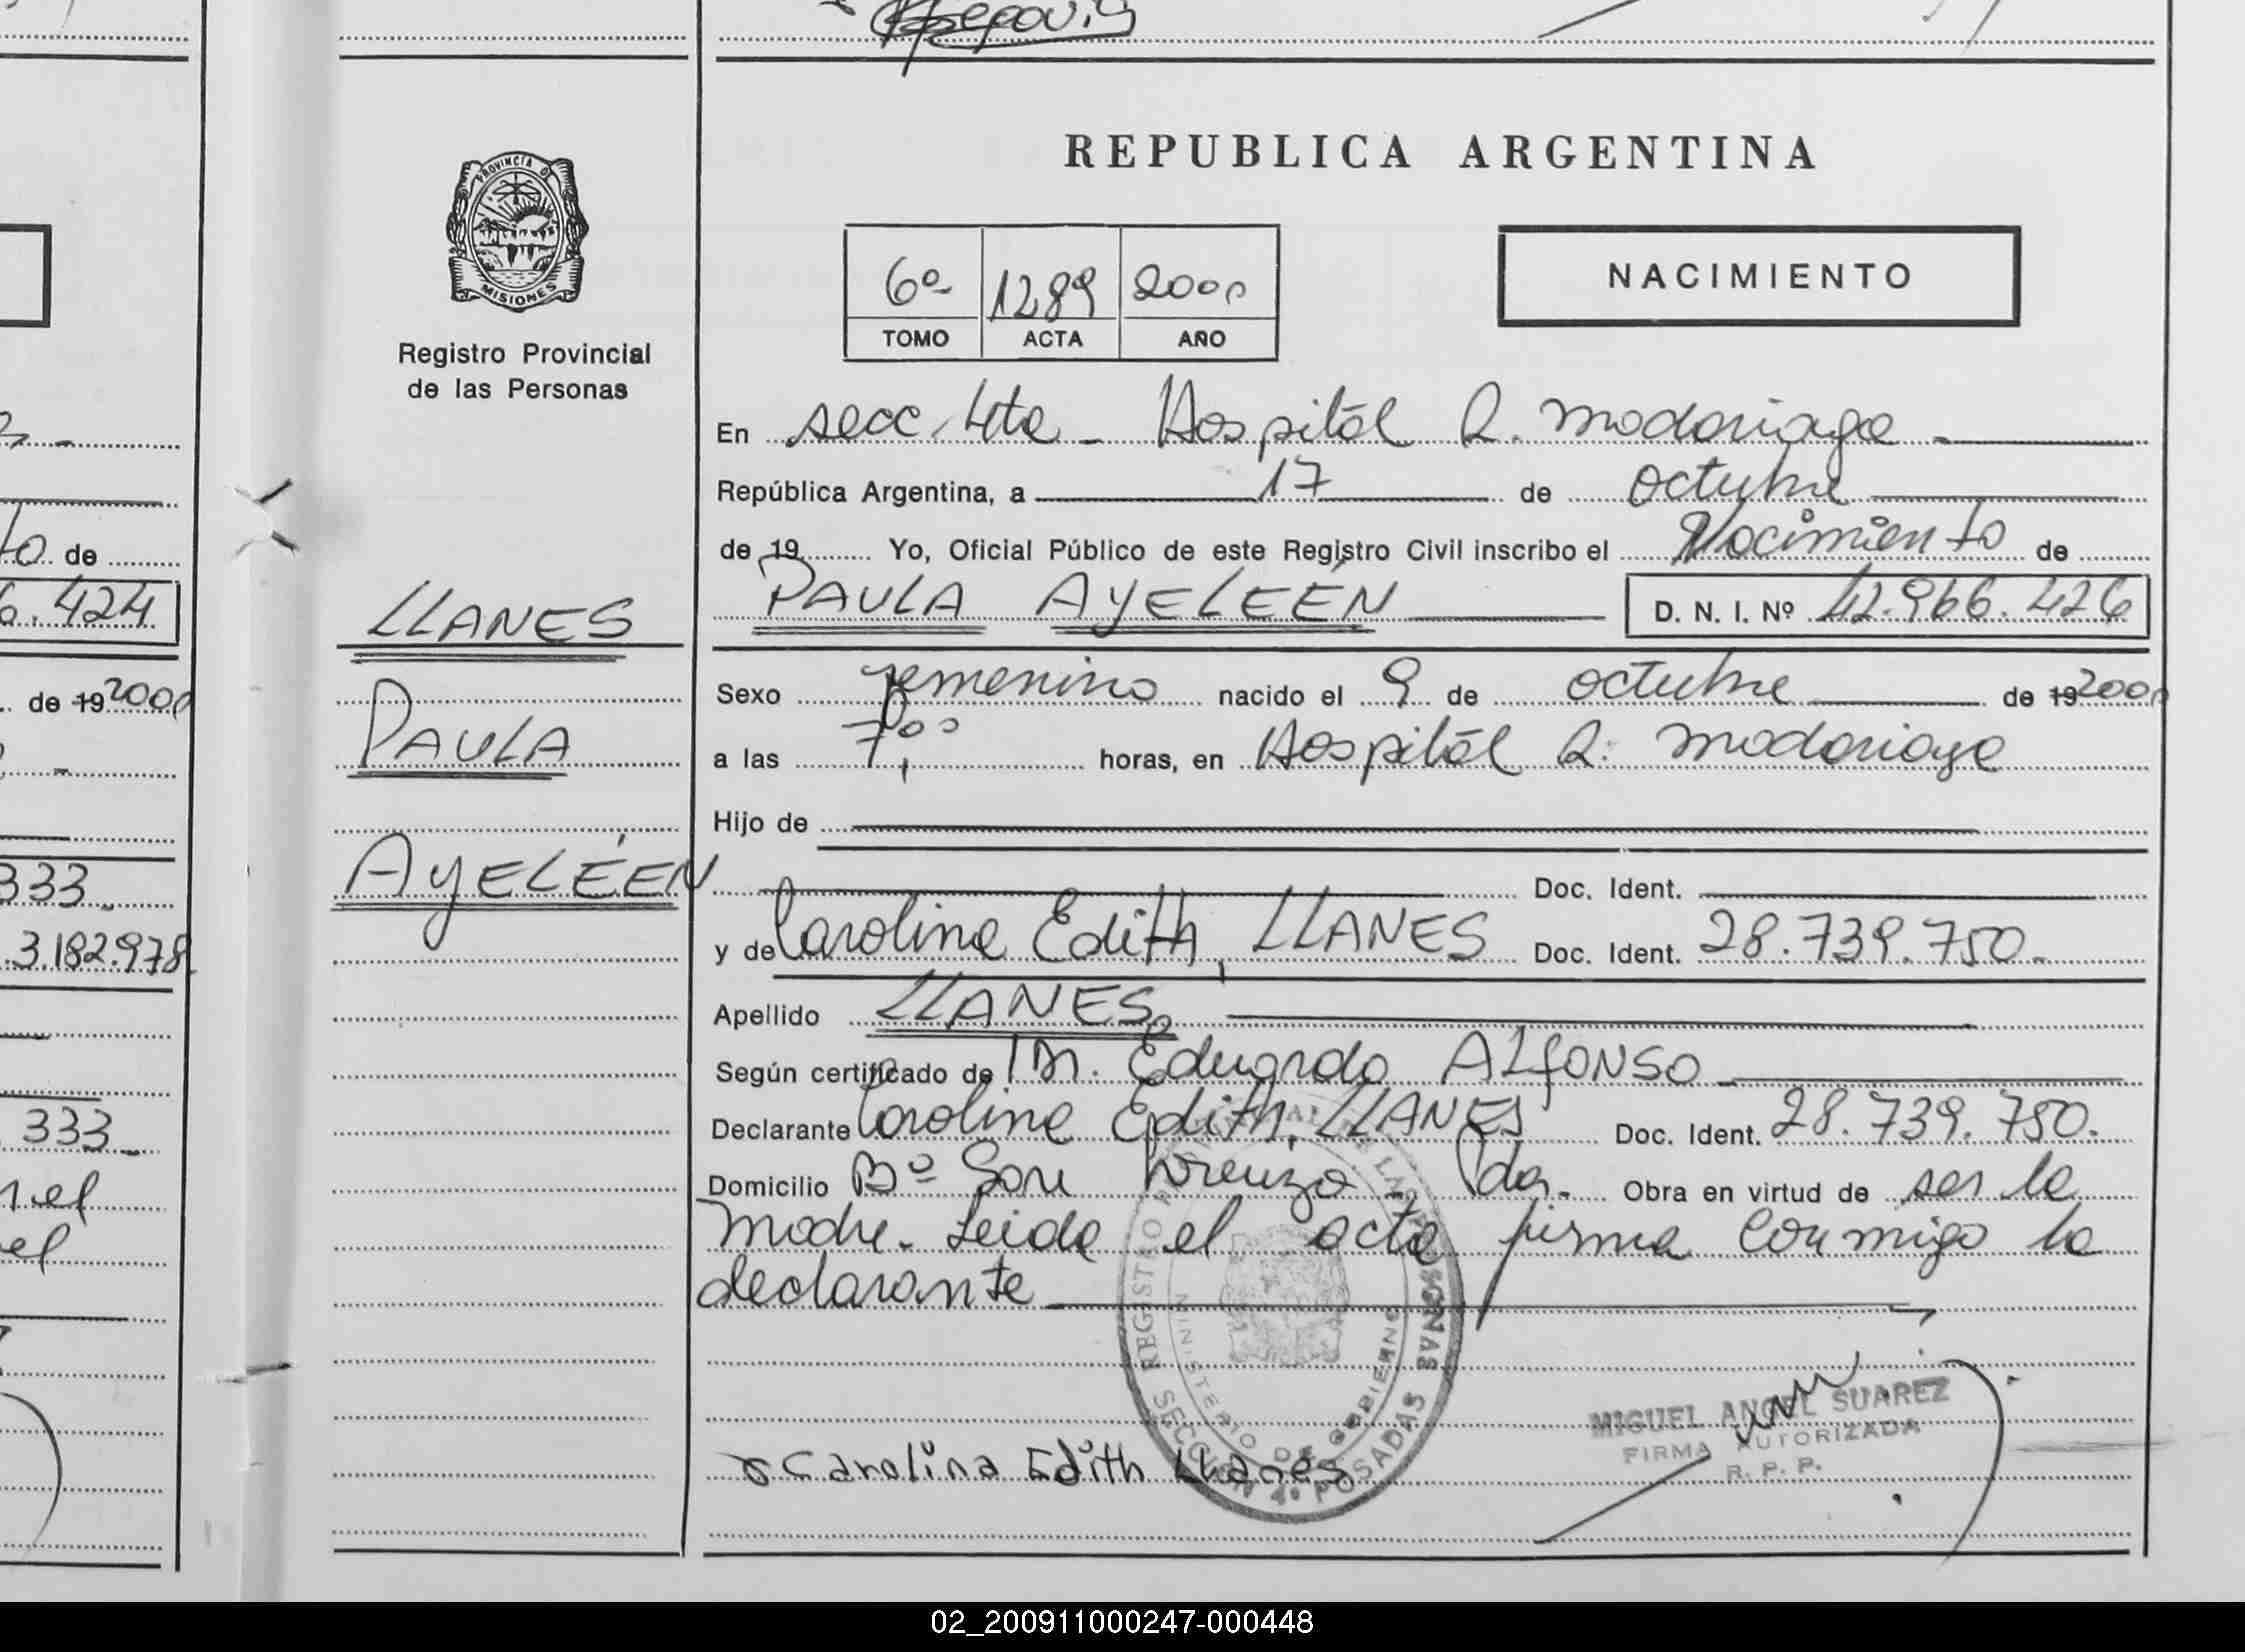 REPUBLICA ARGENTINA
PROVINCIA DE
MISIONES
Registro Provincial
de las Personas
6º 1289 2000
TOMO ACTA AÑO
NACIMIENTO
En secc. 4ta - Hospital R. Madariaga -
República Argentina, a 17 de octubre
de 19 Yo, Oficial Público de este Registro Civil inscribo el Nacimiento de
PAULA AYELÉEN D. N. I. Nº 42.966.426
LLANES
PAULA
AYELÉEN
Sexo femenino nacido el 9 de octubre de 19 2000
a las 7,00 horas, en Hospital R. Madariaga
Hijo de
Doc. Ident.
y de Carolina Edith, LLANES Doc. Ident. 28.739.750.-
Apellido LLANES
Según certificado de Dr. Eduardo ALFONSO
Declarante Carolina Edith, LLANES Doc. Ident. 28.739.750.
Domicilio Bº San Lorenzo - Pdas. Obra en virtud de ser la
madre. Leida el acta firma conmigo la
declarante
MIGUEL ANGEL SUAREZ
FIRMA AUTORIZADA
R. P. P.
Carolina Edith Llanes
REGISTRO PROVINCIAL DE LAS PERSONAS
MINISTERIO DE GOBIERNO
SECCION 4º POSADAS
to de
6.424
de 19 2000
333-
3.182.978
333-
n el
el
02_200911000247-000448